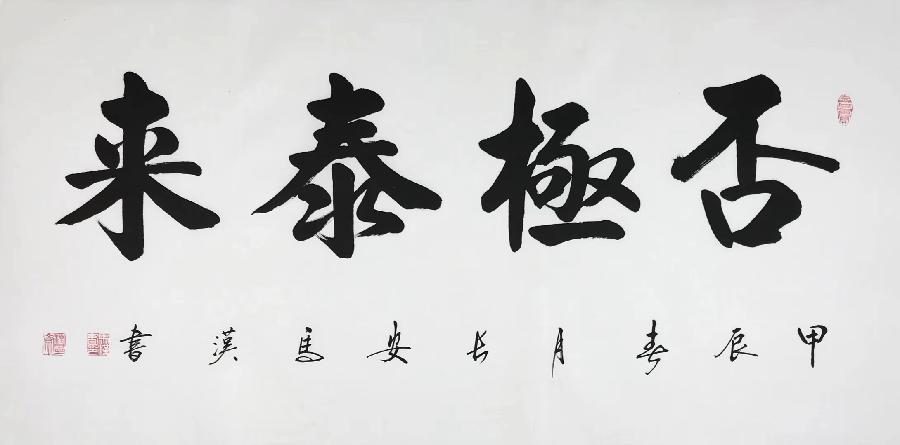 否極泰来
甲辰春月长安馬漢書